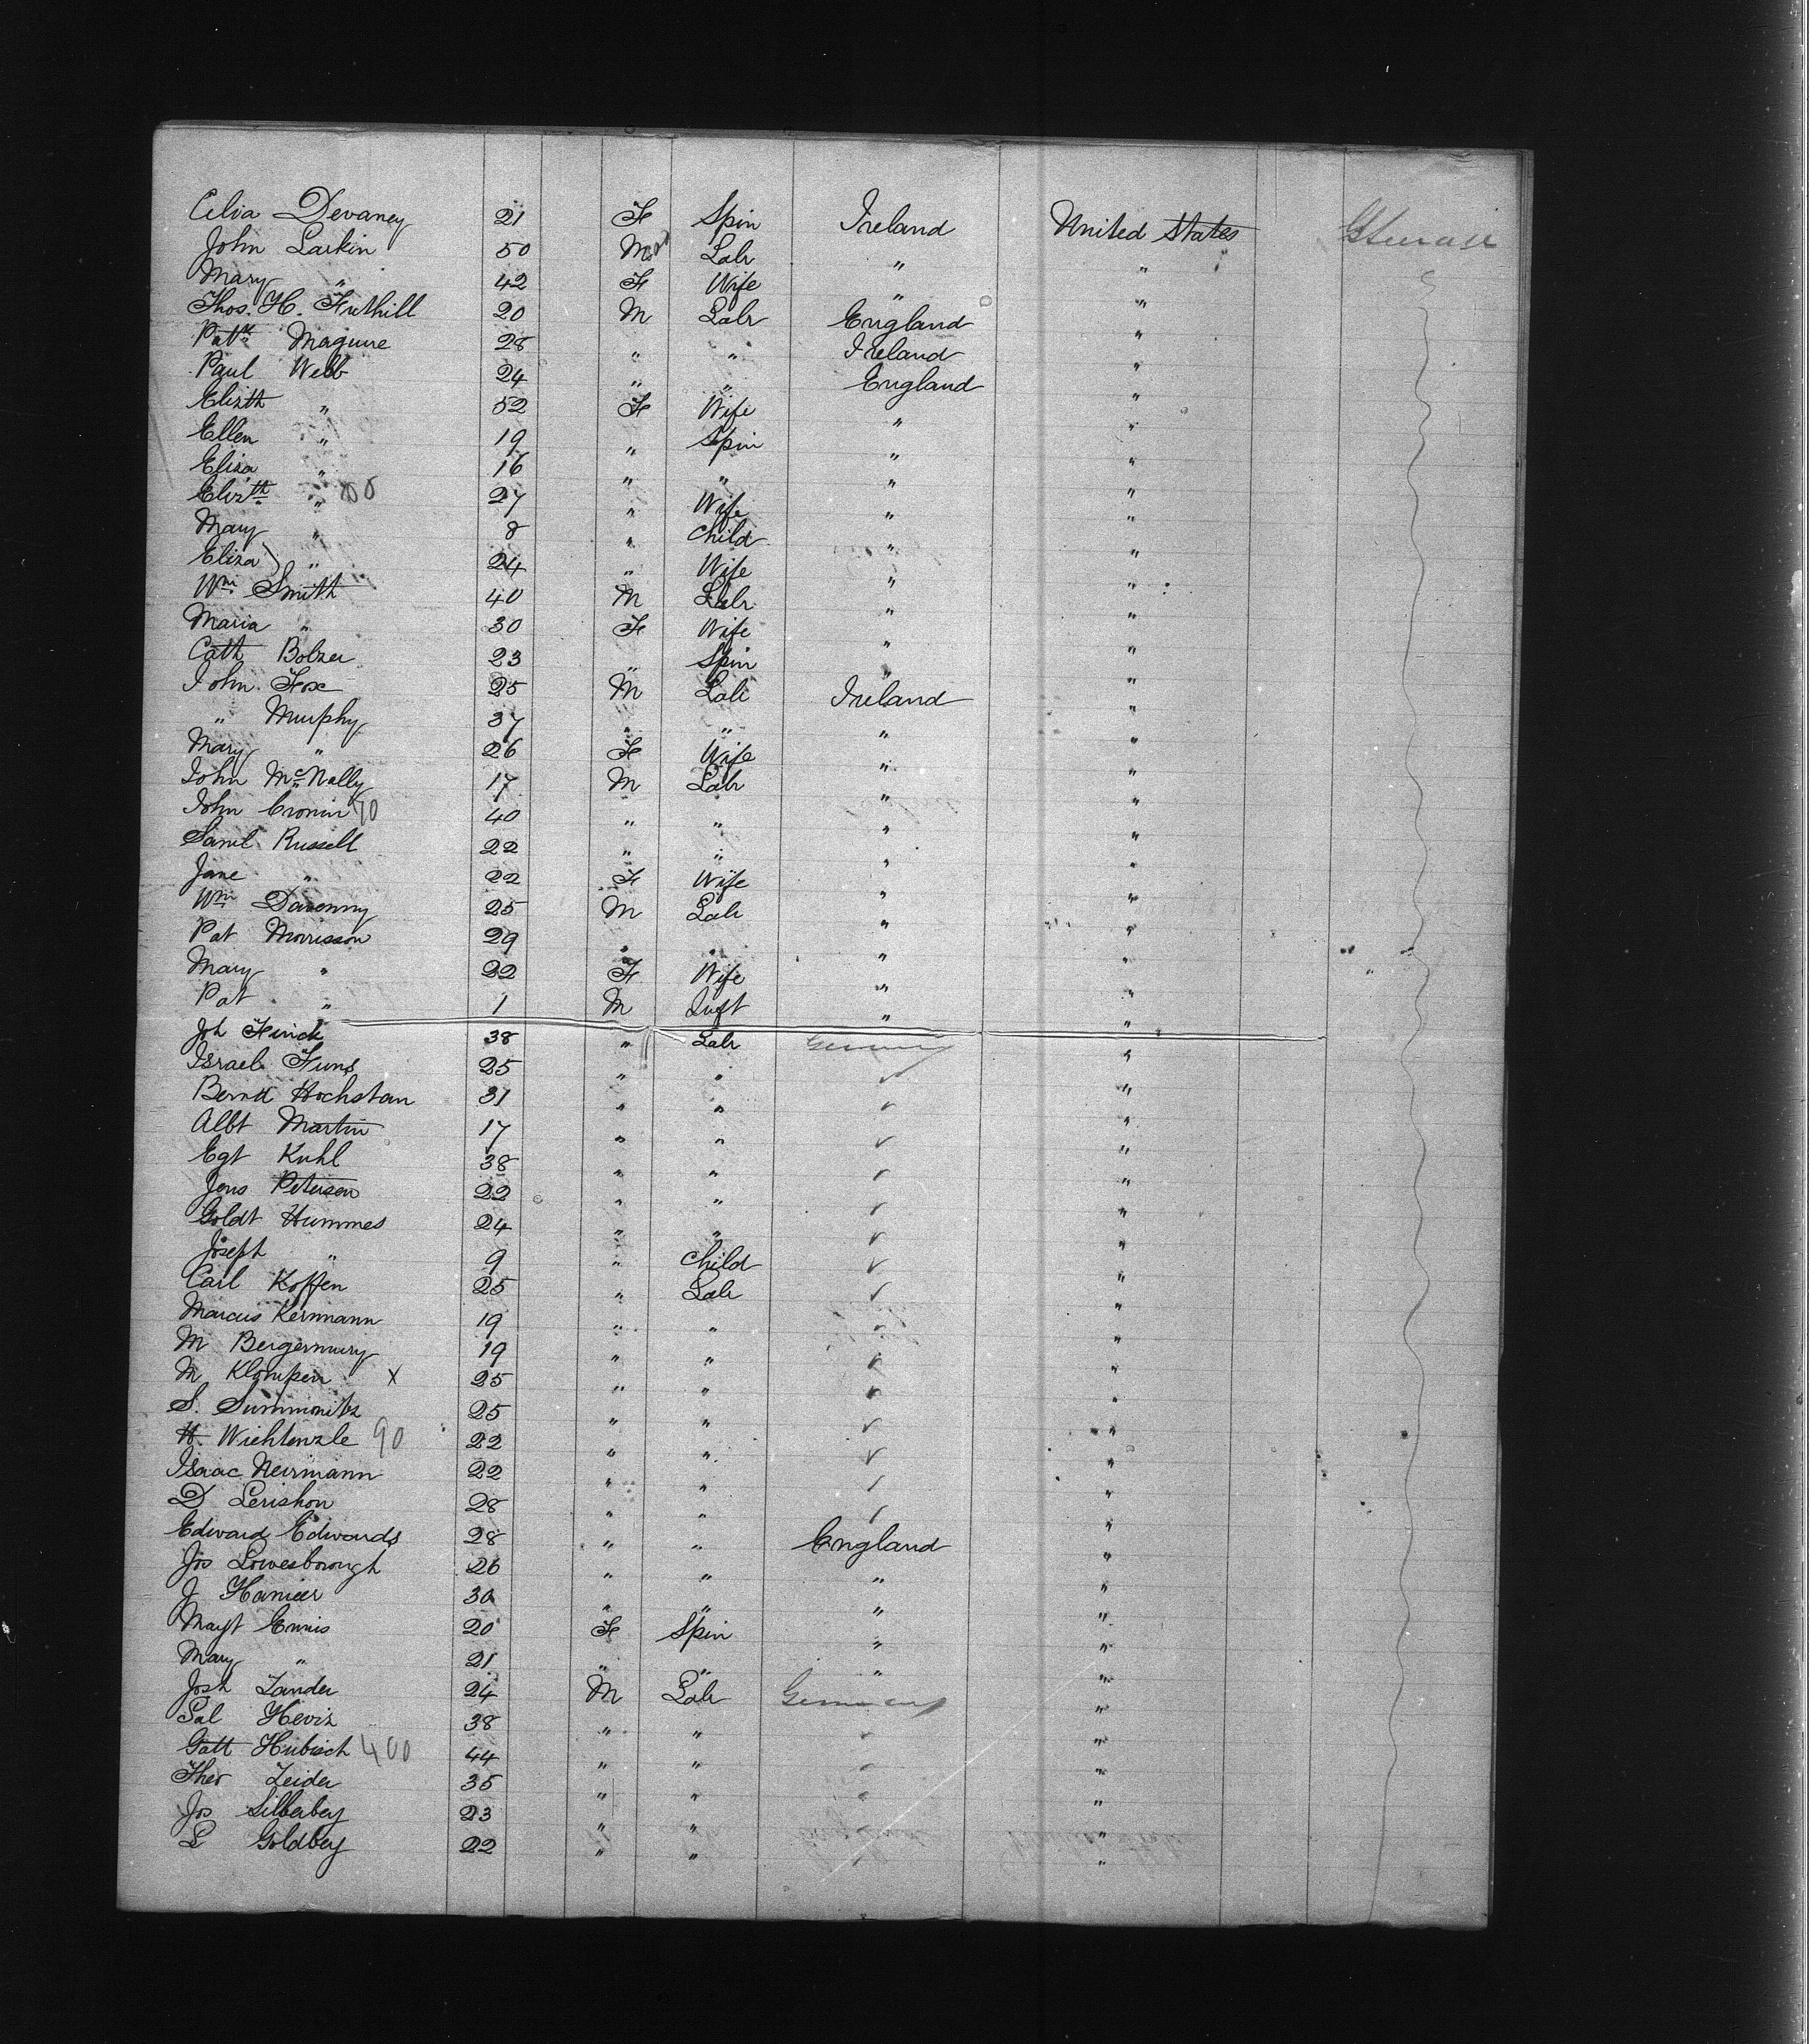 Celia Devaney 21 F Spin Ireland United States Steerage
John Larkin 50 M Labr " "
Mary " 42 F Wife " "
Thos. H. Futhill 20 M Labr England "
Patk Maguire 28 " " Ireland "
Paul Webb 24 " " England "
Elizth " 52 F Wife " "
Ellen " 19 " Spin " "
Eliza " 16 " " " "
Elizth " 27 " Wife " "
Mary " 8 " Child " "
Eliza " 24 " Wife " "
Wm Smith 40 M Labr " "
Maria " 30 F Wife " "
Cath Bolzer 23 " Spin " "
John Fox 25 M Labr Ireland "
" Murphy 37 " " " "
Mary " 26 F Wife " "
John McNally 17 M Labr " "
John Cronin 70 40 " " " "
Saml Russell 22 " " " "
Jane " 22 F Wife " "
Wm Davenny 25 M Labr " "
Pat Morrisson 29 " " " "
Mary " 22 F Wife " "
Pat " 1 M Inft " "
Joh Finck 38 " Labr Germany "
Israel Funs 25 " " "
Bernd Hochstan 31 " " "
Albt Martin 17 " " "
Egt Kuhl 38 " " "
Jens Petersen 22 " " "
Goldt Hummes 24 " " "
Joseph " 9 " Child "
Carl Koffen 25 " Labr "
Marcus Kernmann 19 " " "
M 19 " " "
M Klompen x 25 " " "
S. Summonitz 25 " " "
H. Wichtenzle 90 22 " " "
Isaac Neirmann 22 " " "
D Lerishon 28 " " "
Edward Edwards 28 " " England "
Jos Lowesborough 26 " " " "
J Hanier 30 " " " "
Magt Ennis 20 F Spin " "
Mary " 21 " " " "
Josh Zander 24 M Labr Germany "
Sal Heviz 38 " " "
Gatt Hubisch 400 44 " " "
Ther Zeider 35 " " "
Jos Silberbey 23 " " "
L Goldbey 22 " " "